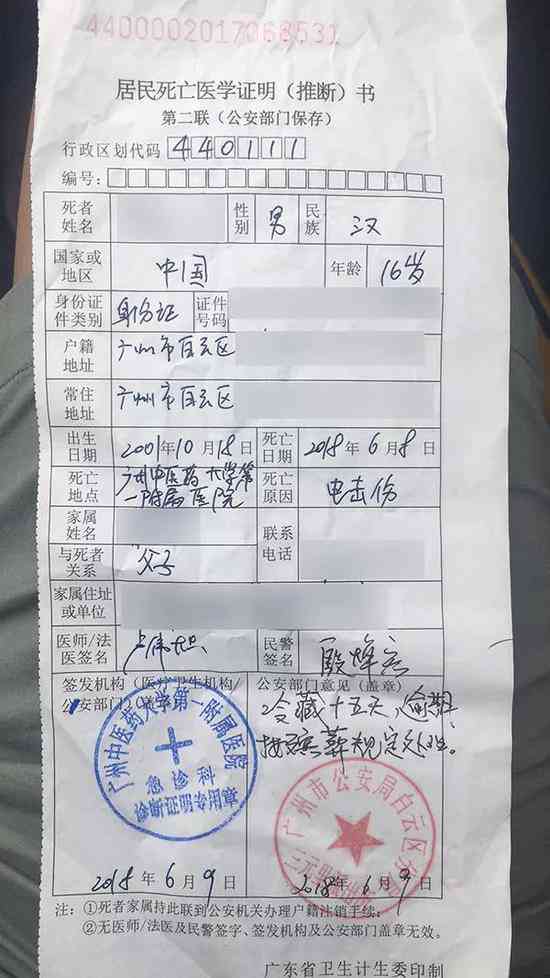 4400002017068531
居民死亡医学证明（推断）书
第二联（公安部门保存）
行政区划代码 440111
编号：
死者姓名 性别 男 民族 汉
国家或地区 中国 年龄 16岁
身份证件类别 身份证 证件号码
户籍地址 广州市白云区
常住地址 广州市白云区
出生日期 2001年10月18日 死亡日期 2018年6月8日
死亡地点 广州中医药大学第一附属医院 死亡原因 电击伤
家属姓名 联系电话
与死者关系 父子
家属住址或单位
医师/法医签名 民警签名
签发机构（医疗卫生机构/公安部门）（盖章） 公安部门意见（盖章）
冷藏十五天，逾期
按殡葬规定处理。
广州中医药大学第一附属医院
急诊科
诊断证明专用章
广州市公安局白云区分局
2018年6月9日 2018年6月9日
注：①死者家属持此联到公安机关办理户籍注销手续；
②无医师/法医及民警签字、签发机构及公安部门盖章无效。
广东省卫生计生委印制